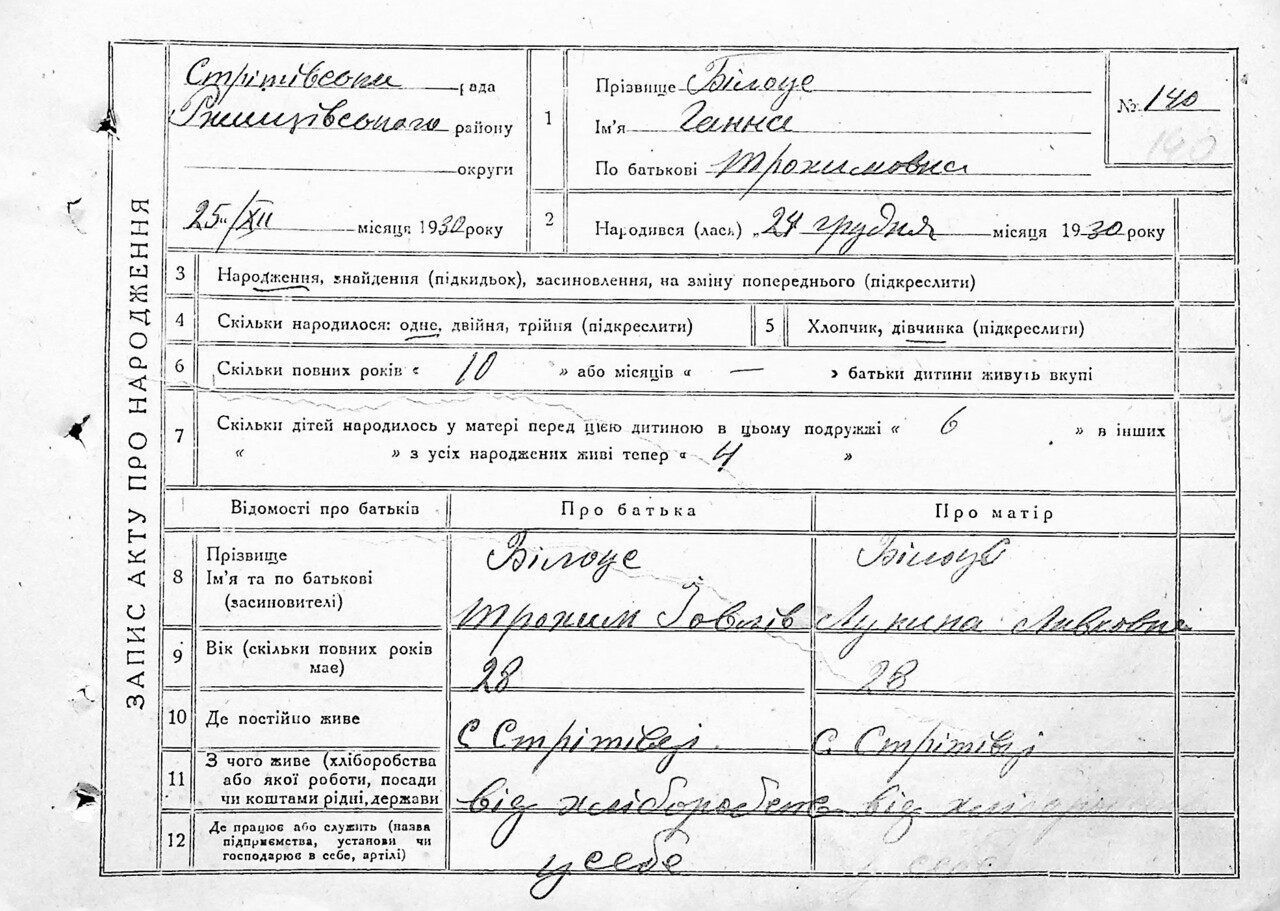 ЗАПИС АКТУ ПРО НАРОДЖЕННЯ
Стрітівська рада
Ржищівського району
округи
25/XII місяця 1930 року
1
Прізвище Білоус
Ім'я Ганна
По батькові Трохимовна
№ 140
140
2
Народився (лась) „24 грудня місяця 1930 року
3 Народження, знайдення (підкидьох), засиновлення, на зміну попереднього (підкреслити)
4 Скільки народилося: одне, двійня, трійня (підкреслити)
5 Хлопчик, дівчинка (підкреслити)
6 Скільки повних років « 10 » або місяців « — » батьки дитини живуть вкупі
7 Скільки дітей народилось у матері перед цією дитиною в цьому подружжі « 6 » в інших
« » з усіх народжених живі тепер « 4 »
Відомості про батьків Про батька Про матір
8 Прізвище
Ім'я та по батькові
(засиновителі)
Білоус
Трохим
Білоус
Лукина
9 Вік (скільки повних років
має)
28
28
10 Де постійно живе
С Стрітівці
С. Стрітівці
11 З чого живе (хліборобства
або якої роботи, посади
чи коштами рідні, держави
від хліборобств
від
12 Де працює або служить (назва
підприємства, установи чи
господарює в себе, артілі)
у себе
у себе